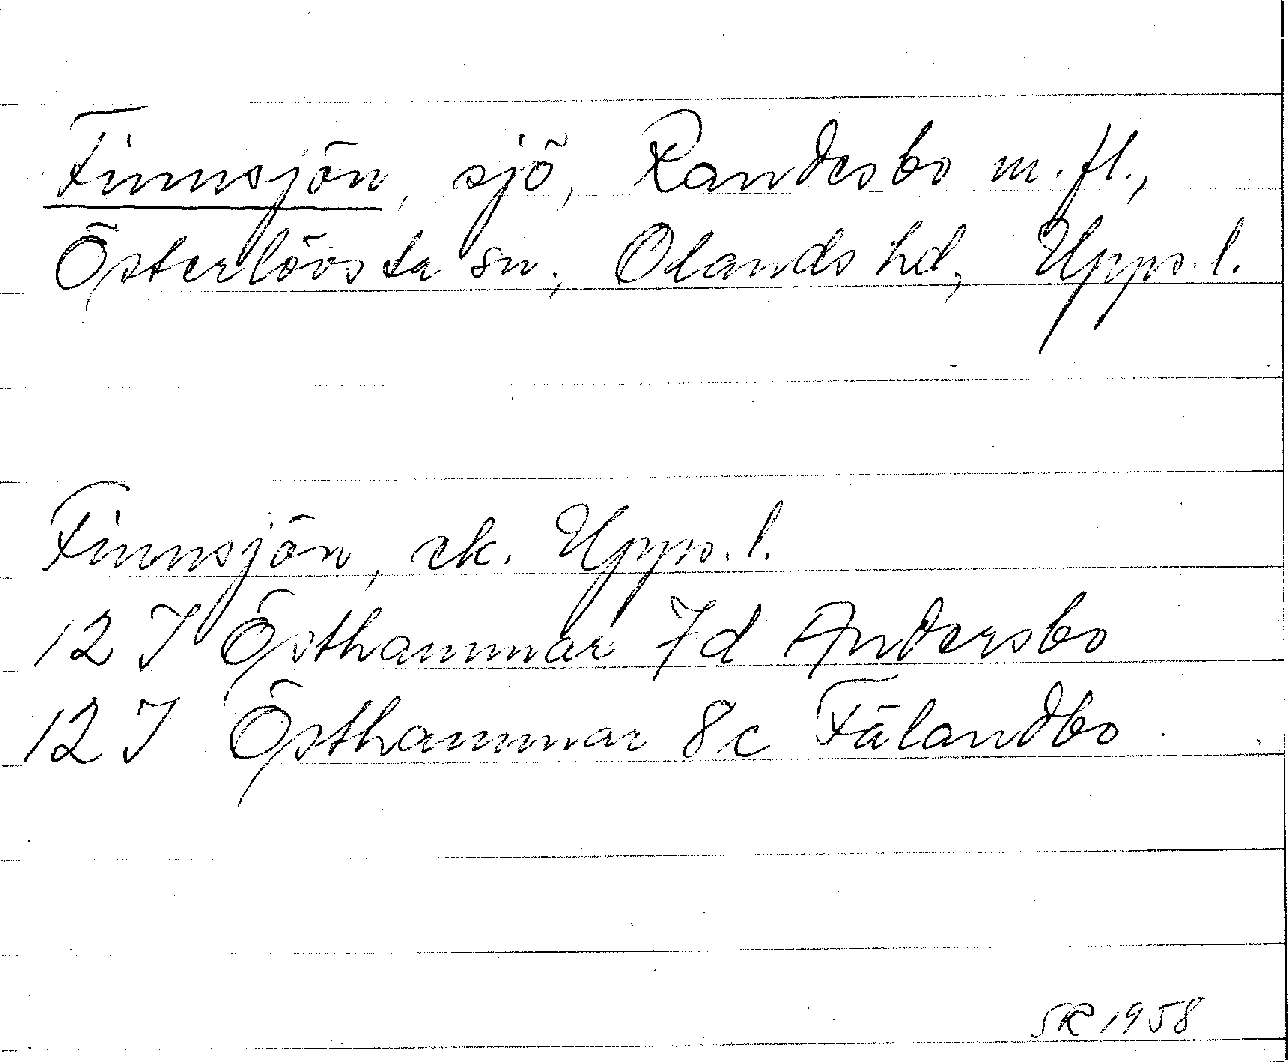 Finnsjön, sjö, Randesbo m.fl.,
Österlövsta sn, Olands hd, Upps.l.
Finnsjön, ek. Upps.l.
12 I Östhammar 7d Andersbo
12 I Östhammar 8c Fälandbo
SR 1958